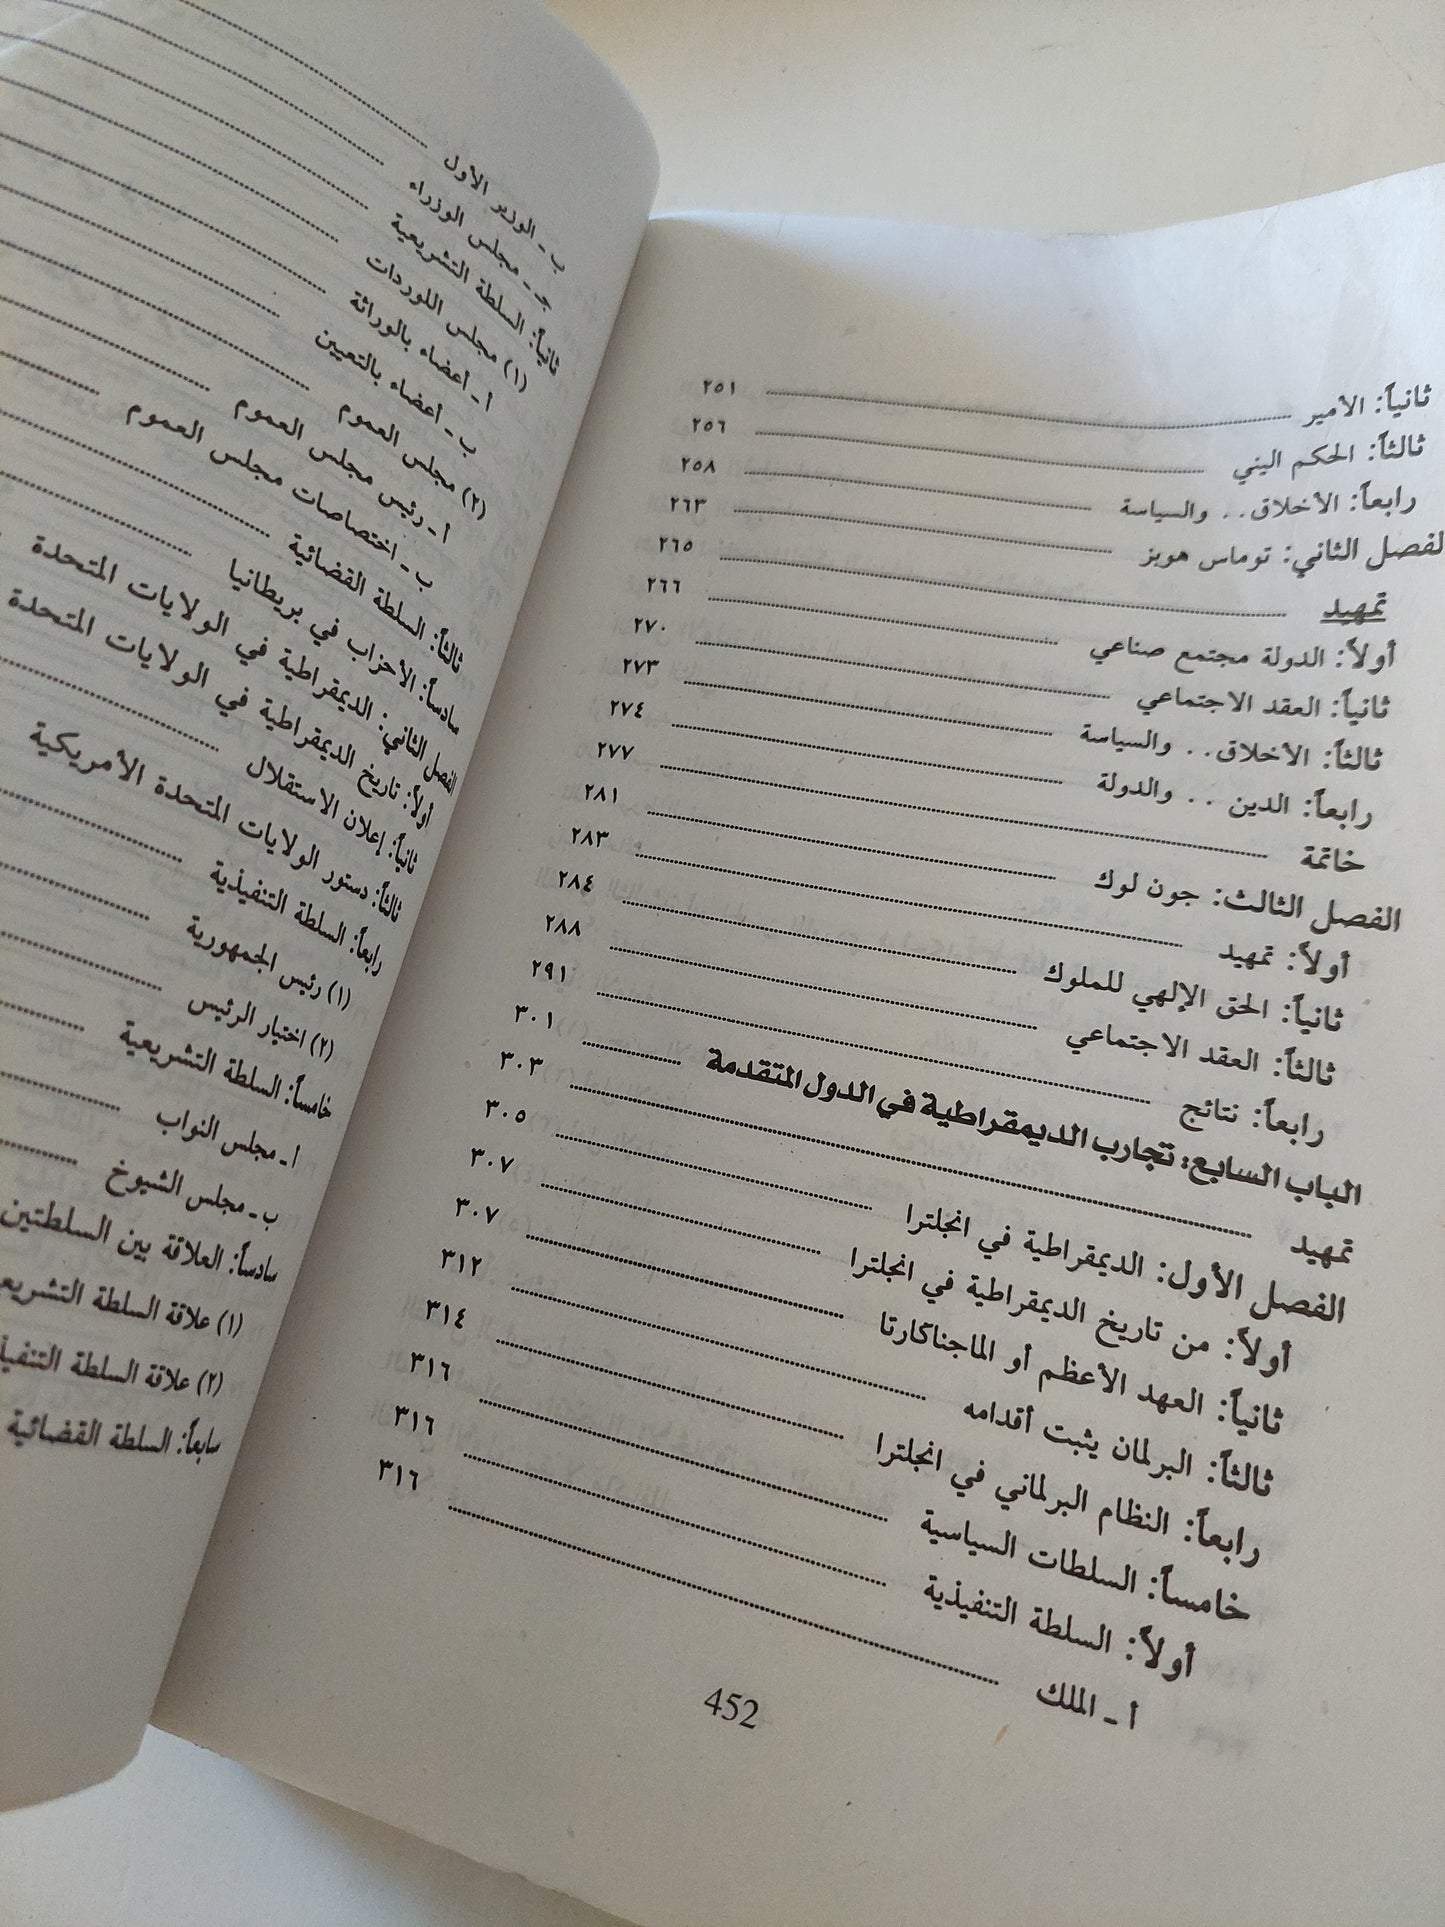 ثانياً: الأمير ٢٥١
ثالثاً: الحكم اليني ٢٥٦
رابعاً: الأخلاق.. والسياسة ٢٥٨
لفصل الثاني: توماس هوبز ٢٦٣
تمهيد ٢٦٥
أولاً: الدولة مجتمع صناعي ٢٦٦
ثانياً: العقد الاجتماعي ٢٧٠
ثالثاً: الأخلاق.. والسياسة ٢٧٣
رابعاً: الدين .. والدولة ٢٧٤
خاتمة ٢٧٧
الفصل الثالث: جون لوك ٢٨١
أولاً: تمهيد ٢٨٣
ثانياً: الحق الإلهي للملوك ٢٨٤
ثالثاً: العقد الاجتماعي ٢٨٨
رابعاً: نتائج ٢٩١
الباب السابع: تجارب الديمقراطية في الدول المتقدمة ٣٠١
تمهيد ٣٠٣
الفصل الأول: الديمقراطية في انجلترا ٣٠٥
أولاً: من تاريخ الديمقراطية في انجلترا ٣٠٧
ثانياً: العهد الأعظم أو الماجناكارتا ٣٠٧
ثالثاً: البرلمان يثبت أقدامه ٣١٢
رابعاً: النظام البرلماني في انجلترا ٣١٤
خامساً: السلطات السياسية ٣١٦
أولاً: السلطة التنفيذية ٣١٦
أ ـ الملك ٣١٦
452
ب ـ الوزير الأول
جـ ـ مجلس الوزراء
ثانياً: السلطة التشريعية
(١) مجلس اللوردات
أ ـ أعضاء بالوراثة
ب ـ أعضاء بالتعيين
(٢) مجلس العموم
أ ـ رئيس مجلس العموم
ب ـ اختصاصات مجلس العموم
ثالثاً: السلطة القضائية
سادساً: الأحزاب في بريطانيا
الفصل الثاني: الديمقراطية في الولايات المتحدة
أولاً: تاريخ الديمقراطية في الولايات المتحدة
ثانياً: إعلان الاستقلال
ثالثاً: دستور الولايات المتحدة الأمريكية
رابعاً: السلطة التنفيذية
(١) رئيس الجمهورية
(٢) اختيار الرئيس
خامساً: السلطة التشريعية
أ ـ مجلس النواب
ب ـ مجلس الشيوخ
سادساً: العلاقة بين السلطتين
(١) علاقة السلطة التشريع
(٢) علاقة السلطة التنفيذ
سابعاً: السلطة القضائية